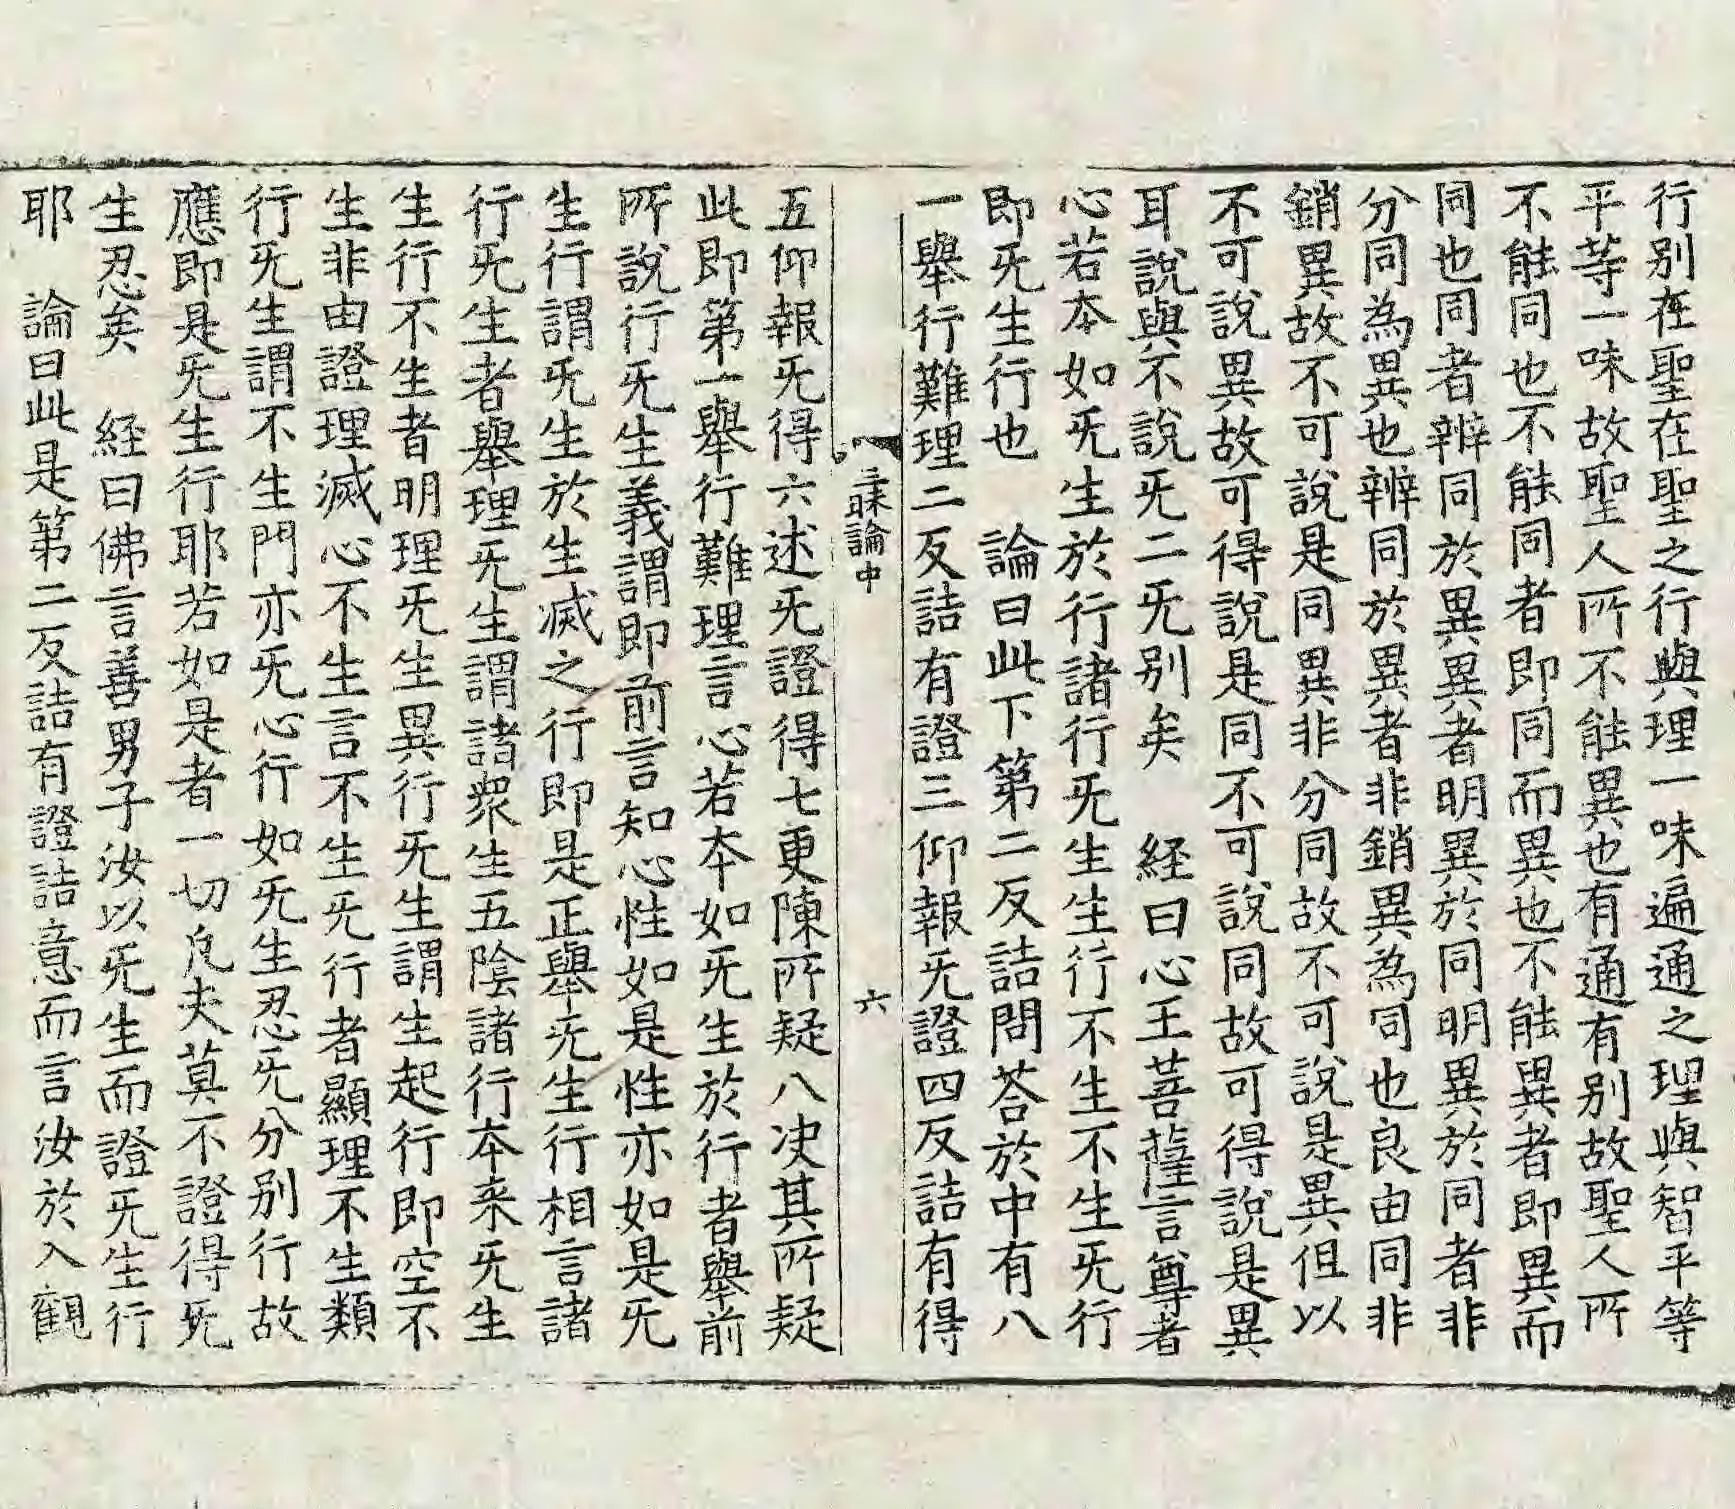 行别在聖在聖之行與理一味遍通之理與智平等
平等一味故聖人所不能異也有通有别故聖人所
不能同也不能同者即同而異也不能異者即異而
同也同者辨同於異異者明異於同明異於同者非
分同為異也辨同於異者非銷異為同也良由同非
銷異故不可說是同異非分同故不可說是異但以
不可說異故可得說是同不可說同故可得說是異
耳說與不說无二无别矣　経曰心王菩薩言尊者
心若夲如无生於行諸行无生生行不生不生无行
即无生行也　論曰此下第二反詰問荅於中有八
一舉行難理二反詰有證三仰報无證四反詰有得
三昧論中　六
五仰報无得六述无證得七更陳所疑八决其所疑
此即第一舉行難理言心若夲如无生於行者舉前
所說行无生義謂即前言知心性如是性亦如是无
生行謂无生於生滅之行即是正舉无生行相言諸
行无生者舉理无生謂諸衆生五陰諸行夲来无生
生行不生者明理无生異行无生謂生起行即空不
生非由證理滅心不生言不生无行者顯理不生類
行无生謂不生門亦无心行如无生忍无分别行故
應即是无生行耶若如是者一切凡夫莫不證得无
生忍矣　経曰佛言善男子汝以无生而證无生行
耶　論曰此是第二反詰有證詰意而言汝於入觀